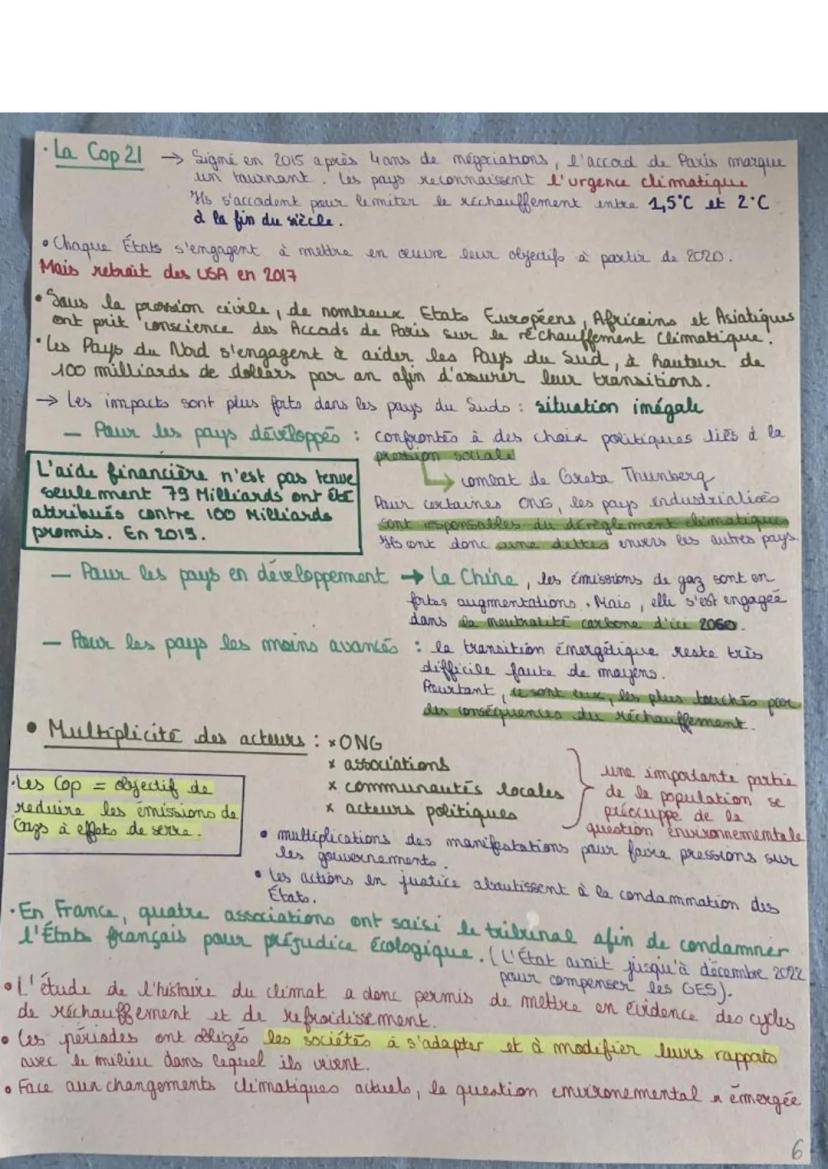 • La Cop 21 → Signé en 2015 après 4 ans de négociations, l'accord de Paris marque
un tournant. Les pays reconnaissent l'urgence climatique
Ils s'accordent pour limiter le réchauffement entre 1,5°C et 2°C
à la fin du siècle.
• Chaque États s'engagent à mettre en œuvre leur objectifs à partir de 2020.
Mais retrait des USA en 2017
• Sous la pression civile, de nombreux Etats Européens, Africains et Asiatiques
ont prit conscience des Accords de Paris sur le réchauffement Climatique.
• Les Pays du Nord s'engagent à aider les Pays du Sud, à hauteur de
100 milliards de dollars par an afin d'assurer leur transitions.
→ Les impacts sont plus forts dans les pays du Sudo : situation inégale
— Pour les pays développés : confrontés à des choix politiques liés à la
pression sociale
↳ combat de Greta Thunberg
Pour certaines ONG, les pays industrialisés
sont responsables du dérèglement climatique
Ils ont donc une dettes envers les autres pays.
L'aide financière n'est pas tenue
seulement 79 Milliards ont été
attribués contre 100 Milliards
promis. En 2019.
— Pour les pays en développement → La Chine, les émissions de gaz sont en
fortes augmentations. Mais, elle s'est engagée
dans la neutralité carbone d'ici 2060.
— Pour les pays les moins avancés : la transition énergétique reste très
difficile faute de moyens.
Pourtant, ce sont eux, les plus touchés par
les conséquences du réchauffement.
• Multiplicité des acteurs : × ONG
× associations
× communautés locales
× acteurs politiques
une importante partie
de la population se
préoccupe de la
question environnementale
• Les Cop = objectif de
reduire les émissions de
Gazs à effets de serre.
• multiplications des manifestations pour faire pressions sur
les gouvernements.
• Les actions en justice aboutissent à la condammation des
États.
• En France, quatre associations ont saisi le tribunal afin de condamner
l'États français pour préjudice écologique. (L'État avait jusqu'à décembre 2022
pour compenser les GES).
• L'étude de l'histoire du climat a donc permis de mettre en évidence des cycles
de réchauffement et de refroidissement.
• Ces périodes ont obligés les sociétés à s'adapter et à modifier leurs rapports
avec le milieu dans lequel ils vivent.
• Face aux changements climatiques actuels, la question environemental a émergée
6